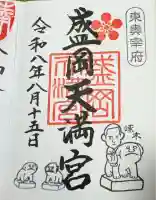 東奥宗府
盛岡天満宮
令和八年八月十五日
啄木